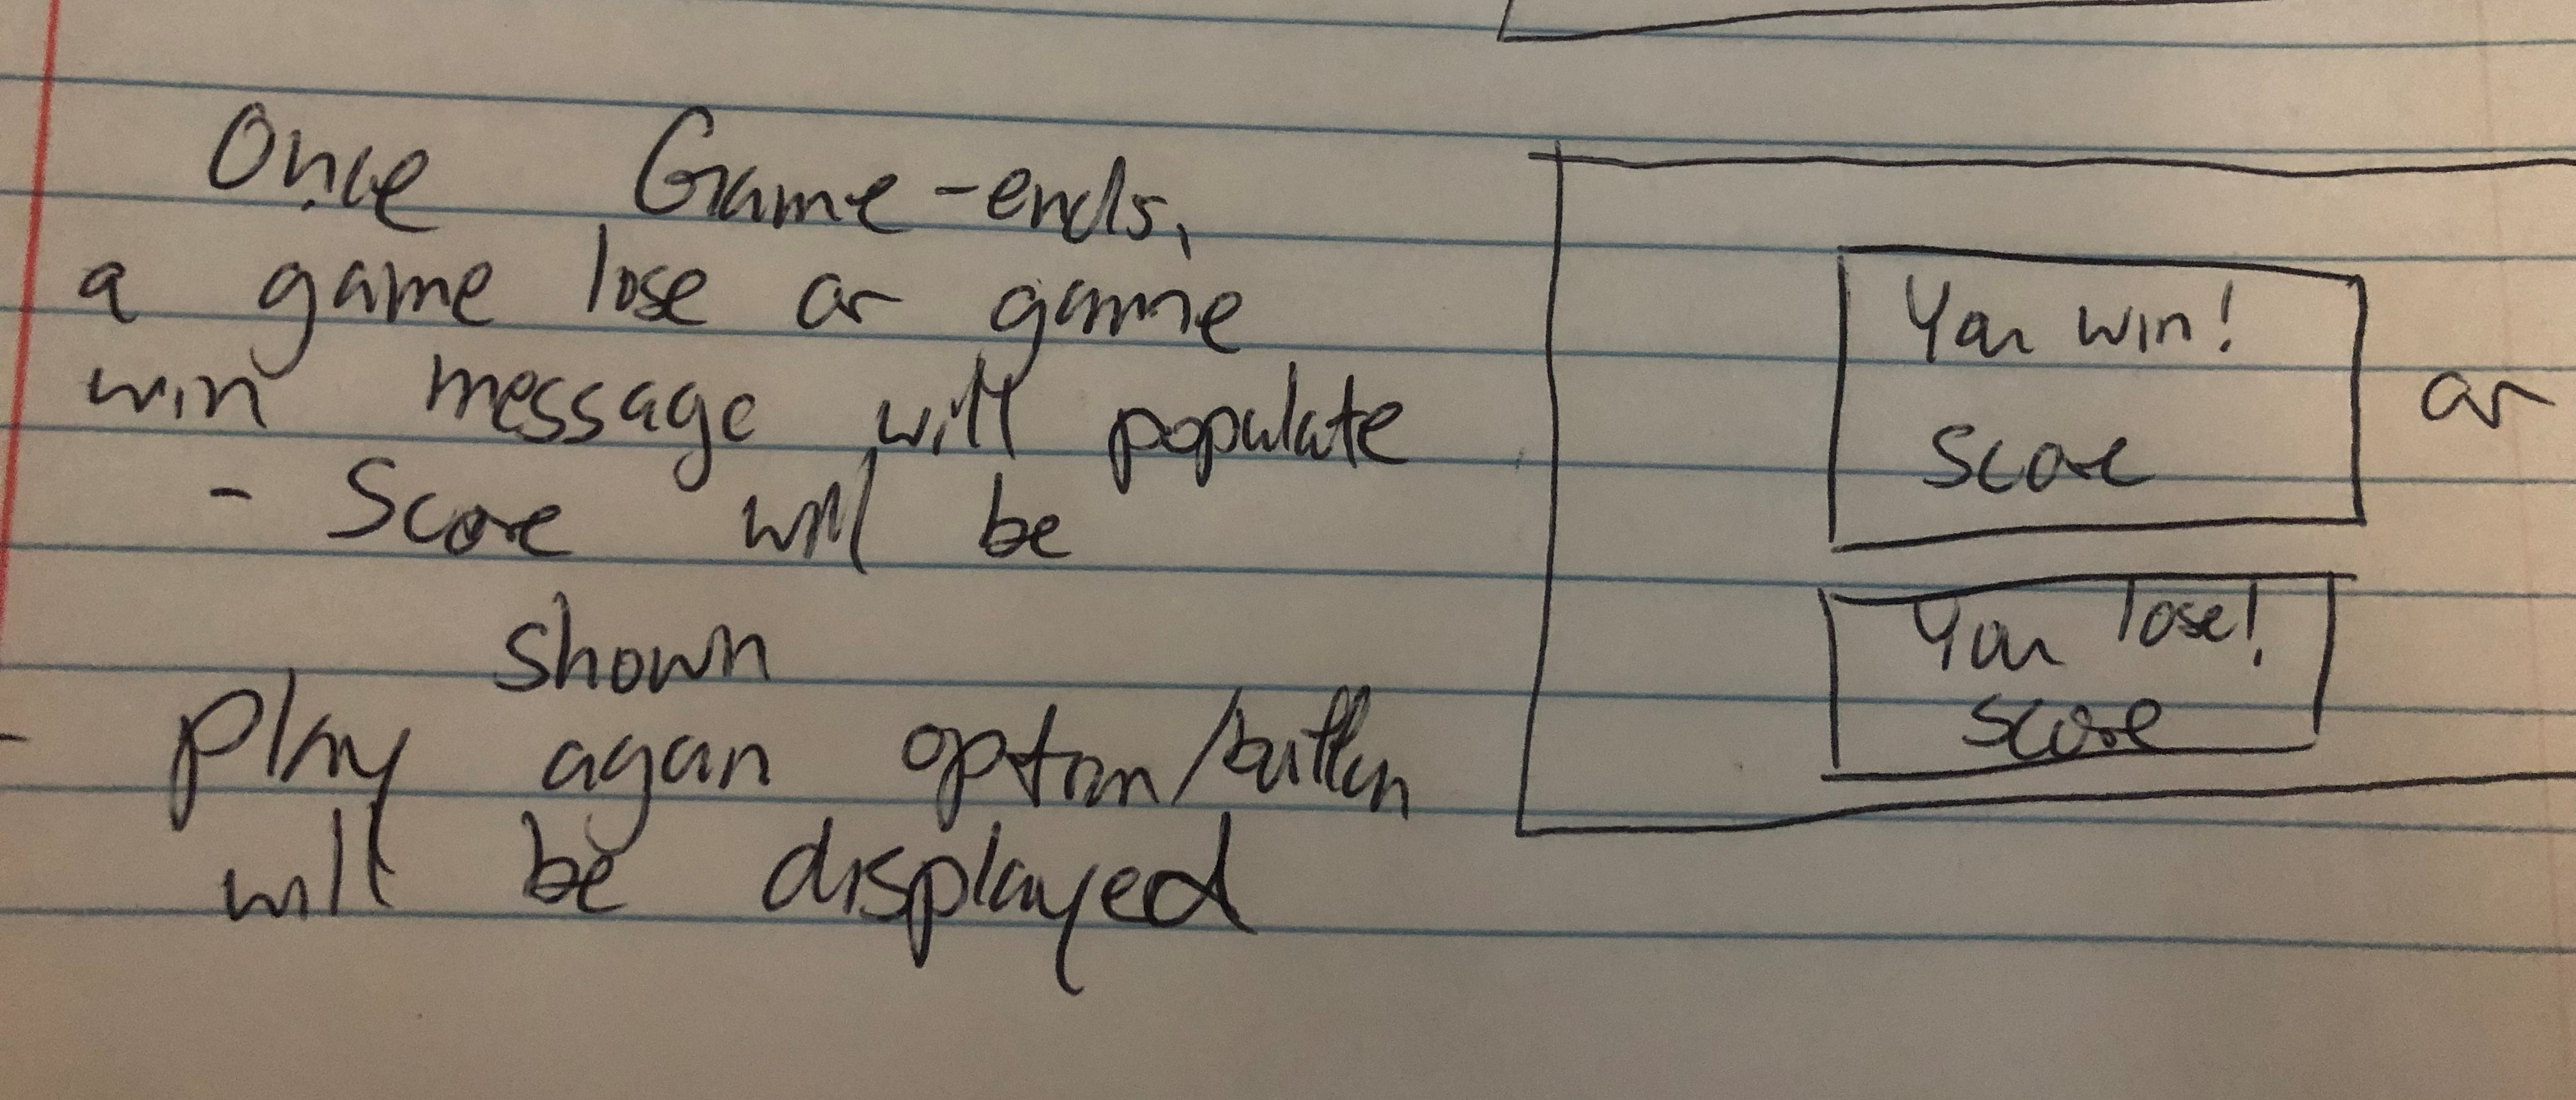 Once Game-ends,
a game lose or game
win message will populate
- Score will be
shown
- Play again option/button
will be displayed
You win!
Score
or
You lose!
Score